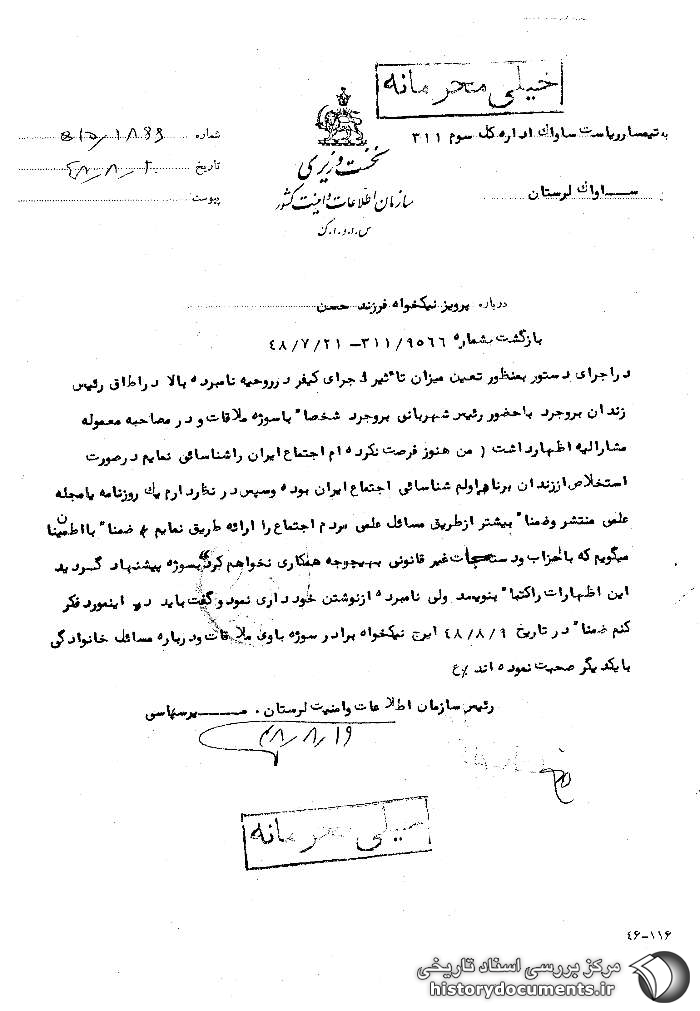 خیلی محرمانه
به تیمسار ریاست ساواک اداره کل سوم ۳۱۱
شماره
نخست وزیری
تاریخ
سازمان اطلاعات و امنیت کشور
ساواک لرستان
پیوست
س.ا.و.ا.ک
درباره پرویز نیکخواه فرزند حسن
بازگشت بشماره ۳۱۱/۹۵۶۶ - ۴۸/۷/۲۱
در اجرای دستور بمنظور تعیین میزان تاثیر اجرای کیفر در روحیه نامبرده بالا در اطاق رئیس
زندان بروجرد با حضور رئیس شهربانی بروجرد شخصا" با سوژه ملاقات و در مصاحبه معموله
مشارالیه اظهار داشت ( من هنوز فرصت نکرده ام اجتماع ایران را شناسائی نمایم در صورت
استخلاص از زندان برنامه اولم شناسائی اجتماع ایران بوده و سپس در نظر دارم یک روزنامه یا مجله
علمی منتشر و ضمنا" بیشتر از طریق مسائل علمی مردم اجتماع را ارائه طریق نمایم ضمنا" با اطمینان
میگویم که با احزاب و دستجات غیر قانونی بهیچوجه همکاری نخواهم کرد) بسوژه پیشنهاد گردید
این اظهارات را کتبا" بنویسد ولی نامبرده از نوشتن خودداری نمود و گفت باید در اینمورد فکر
کنم ضمنا" در تاریخ ۴۸/۸/۹ ایرج نیکخواه برادر سوژه با وی ملاقات و درباره مسائل خانوادگی
با یکدیگر صحبت نموده اند
رئیس سازمان اطلاعات و امنیت لرستان. میرسپاسی
۴۸/۸/۱۹
خیلی محرمانه
۴۶-۱۱۶
مرکز بررسی اسناد تاریخی
historydocuments.ir